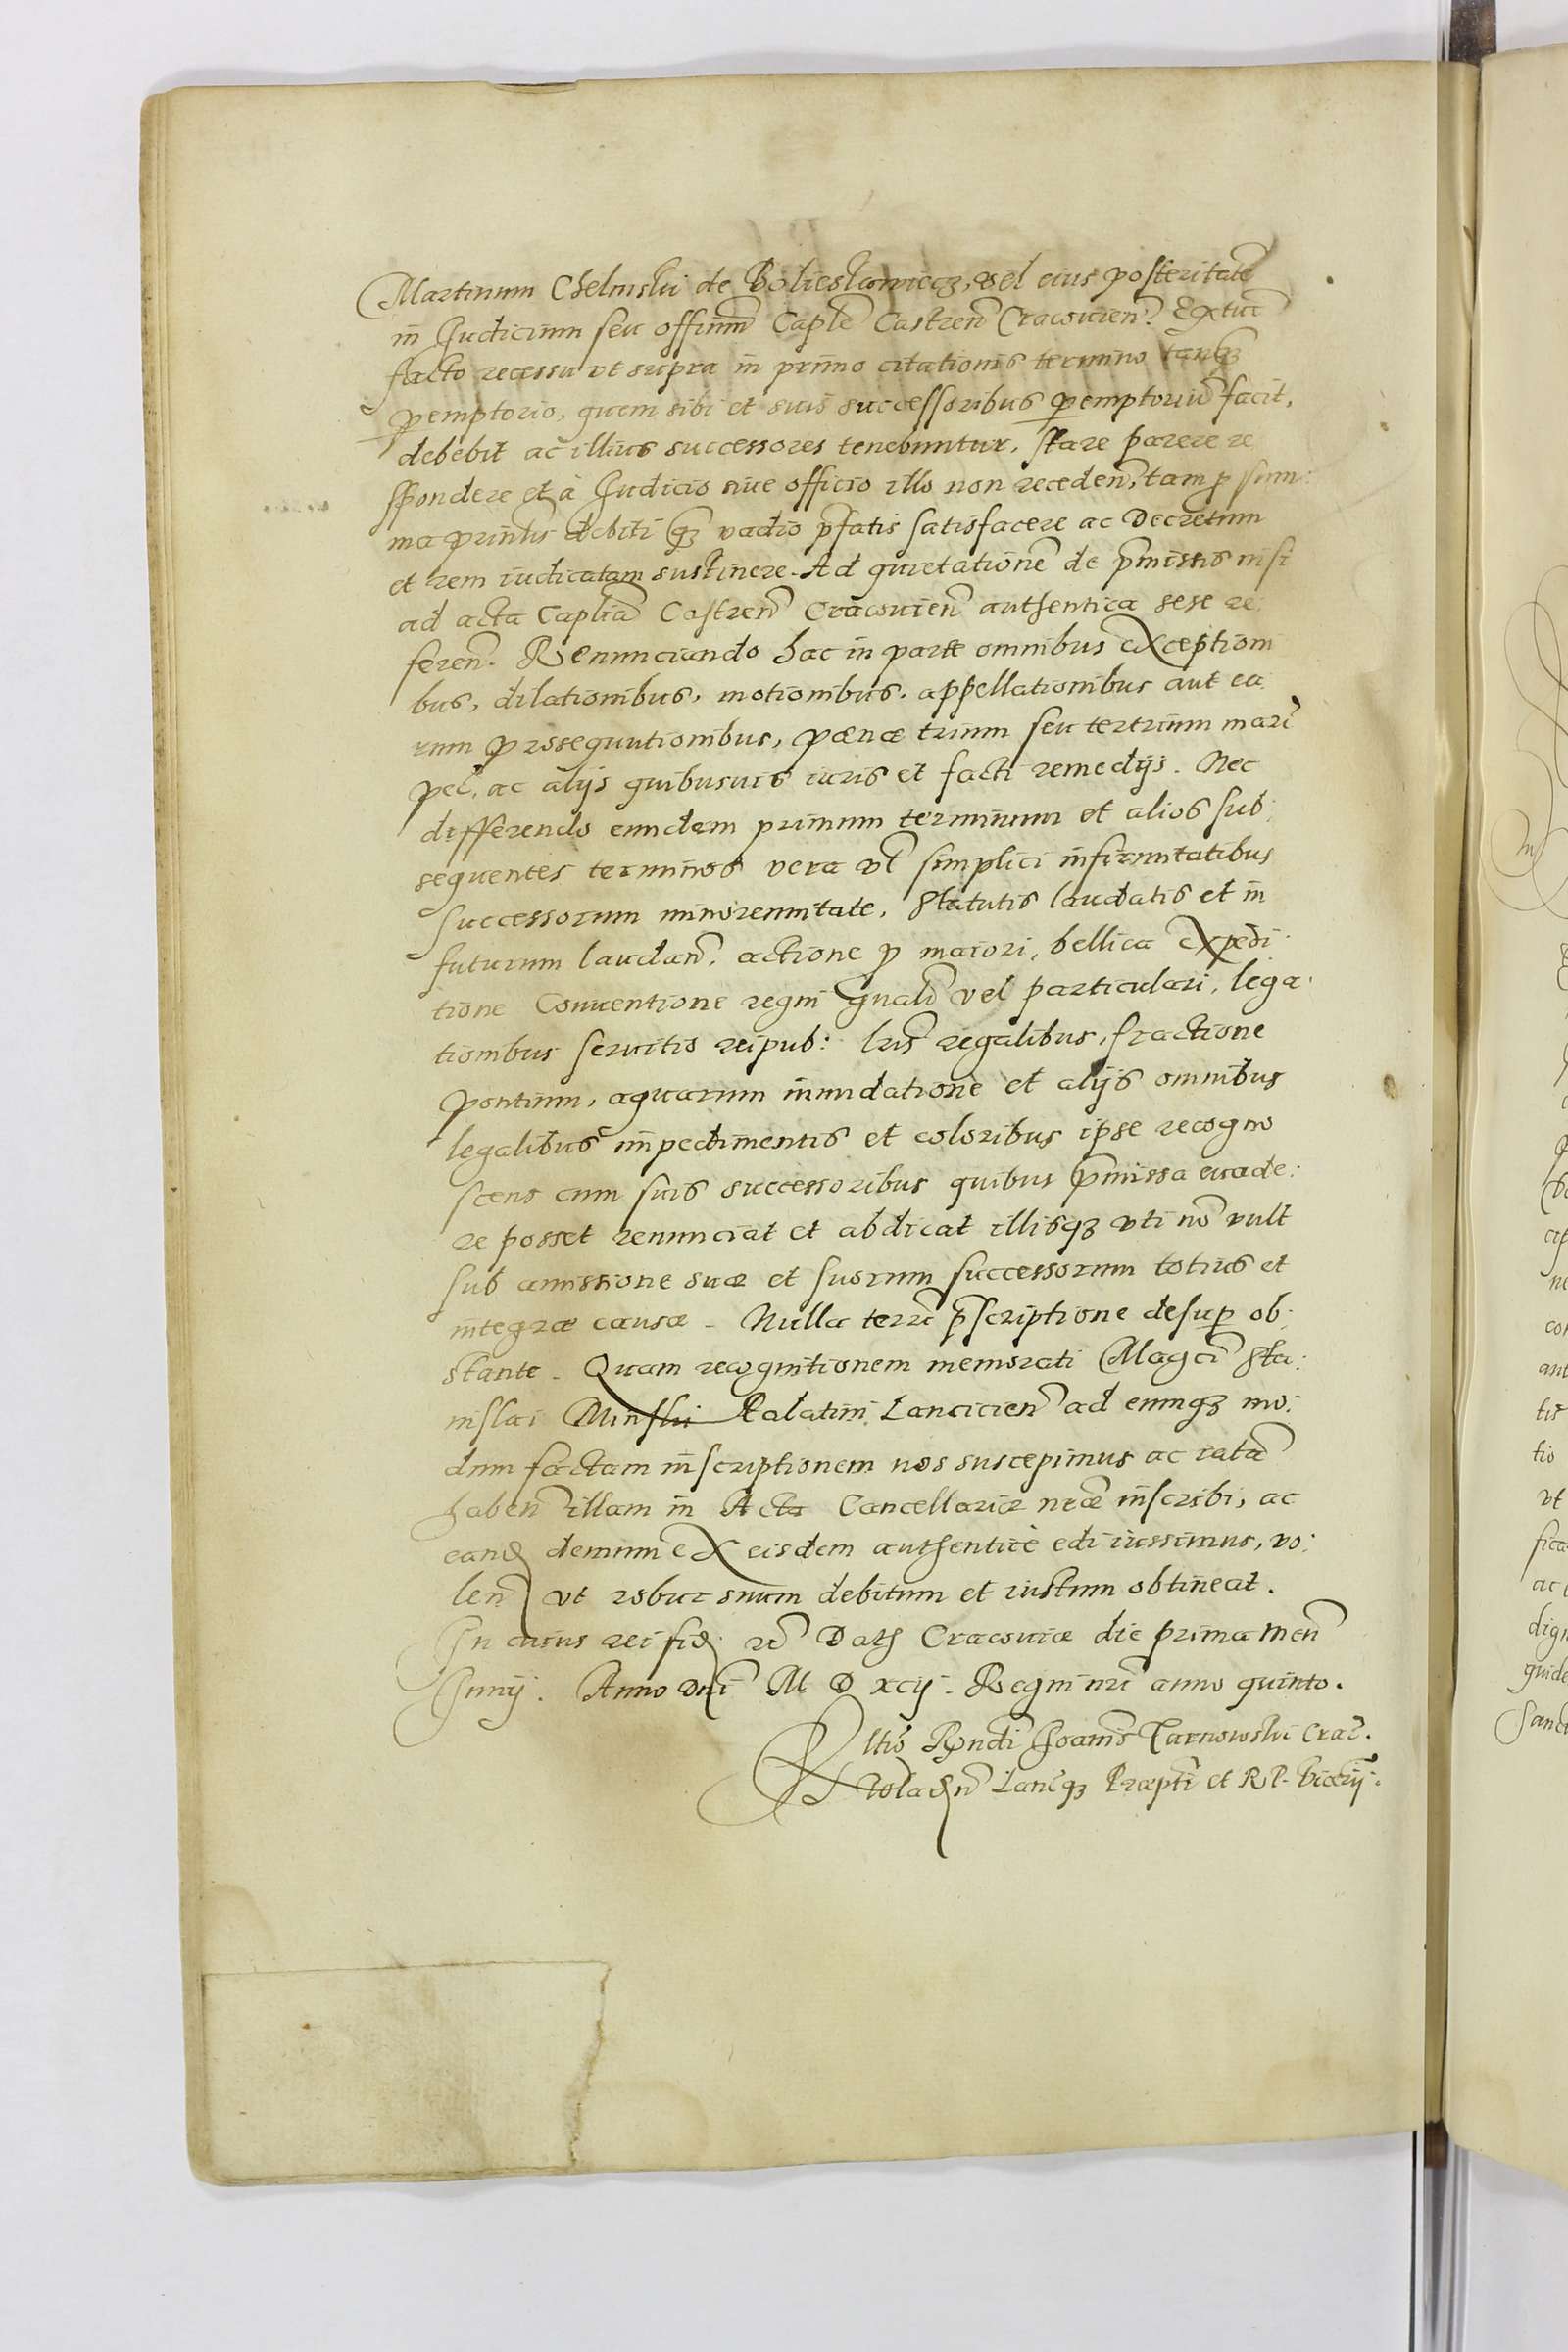 Martinum Chelmski de Bolieslawiecz, vel eius posteritatē
in Judicium seu officium Caplē Castren̄ Cracouien̄. Ex tūc
facto recessu vt supra in primo citationis termino tanq̃
p̱emptorio, quem sibi et suis successoribus p̱emptoriū facit,
debebit ac illius successores tenebuntur, stare parere re
spondere et à Judicio siue officio illo non receden̄, tam p̱ sum:
ma prin̄lis debiti q̃ vadio p̄fatis satisfacere ac Decretum
et rem iudicatam sustinere. Ad quietationē de p̄missis nisi
ad acta Capliā Castren̄ Cracouien̄ authentica sese re:
feren̄. Renunciando hac in parte omnibus exceptioni
bus, dilationibus, motionibus, appellationibus aut ea
rum prosequutionibus, pœnæ trium seu tertrium marc̄
pec̄, ac alijs quibusuis iuris et facti remedijs. Nec
differendo eundem primum terminum et alios sub:
sequentes terminos vera vl̄ simplici infirmitatibus
successorum minorennitate, Statutis laudatis et in
futurum laudan̄, actione p̱ maiori, bellica expedi:
tione Conuentione regni gn̄ali vel particulari, lega:
tionibus seruitio reipub: lr̄is regalibus, fractione
pontium, aquarum inundatione et alijs omnibus
legalibus impedimentis et coloribus ipse recogno
scens cum suis successoribus quibus p̄missa euade:
re posset renunciat et abdicat illisq3 vti nō vult
sub amissione suæ et suorum successorum totius et
integræ causæ. Nulla terr̄ p̄scriptione desup̱ ob:
stante. Quam recognitionem memorati Magci Sta:
nislai Minski Palatini Lancicien̄ ad eumq3 mo:
dum factam inscriptionem nos suscepimus ac ratā
haben̄ illam in Acta Cancellariæ nr̄æ inscribi, ac
eand̄ demum ex eisdem authenticè edi iussimus, vo:
len̄ vt robur suum debitum et iustum obtineat.
In cuius rei fid̄ r̄c Dat̄ Cracouiæ die prima Men̄
Junij. Anno Dn̄i M D xcij. Regni nr̄i anno quinto.
Rl̄tio Rn̄di Joanis Tarnowski Crac̄.
Wladn̄ Lanc̄q3 Præpti et R P. Vicecīj: